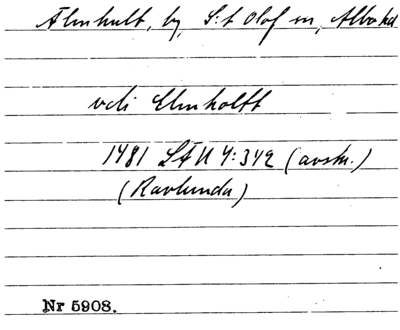 Älmhult, by, S:t Olof sn, Albo hd
vdi Elmholtt
1481 LÄU 4:342 (avskr.)
(Ravlunda)
Nr 5908.